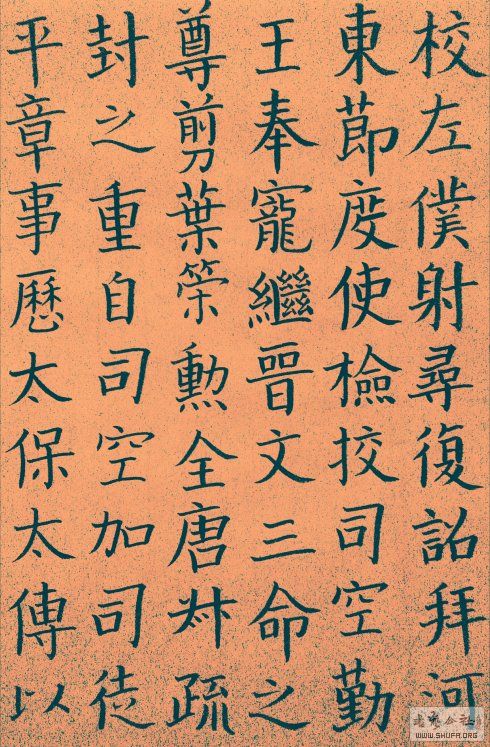 校左僕射尋復詔拜河
東節度使檢挍司空勤
王奉寵繼晉文三命之
尊剪葉筞勳全唐叔疏
封之重自司空加司徒
平章事歷太保太傅以
WWW.SHUFA.ORG